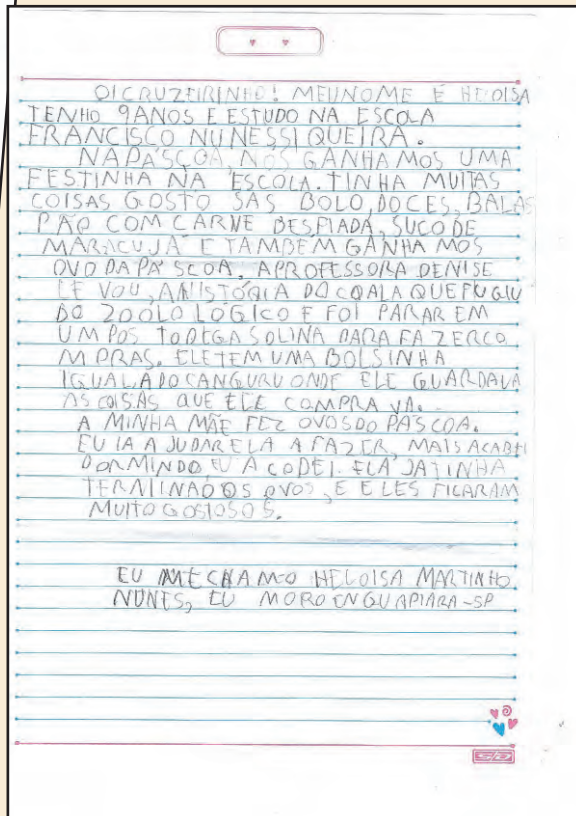 OI CRUZEIRINHO! MEU NOME É HELOISA
TENHO 9 ANOS E ESTUDO NA ESCOLA
FRANCISCO NUNES SIQUEIRA.
NA PÁSCOA, NÓS GANHAMOS UMA
FESTINHA NA ESCOLA. TINHA MUITAS
COISAS GOSTOSAS BOLO, DOCES, BALAS
PÃO COM CARNE DESFIADA, SUCO DE
MARACUJÁ E TAMBEM GANHAMOS
OVO DA PÁSCOA, A PROFESSORA DENISE
LEVOU, A HISTÓRIA DO COALA QUE FUGIU
DO ZOOLOLOGICO E FOI PARAR EM
UM POSTO DE GASOLINA PARA FAZER CO
MPRAS. ELE TEM UMA BOLSINHA
IGUAL A DO CANGURU ONDE ELE GUARDAVA
AS COISAS QUE ELE COMPRAVA.
A MINHA MÃE FEZ OVOS DO PÁSCOA.
EU IA AJUDAR ELA A FAZER, MAIS ACABEI
DORMINDO, EU ACODEI. ELA JA TINHA
TERMINADO OS OVOS, E ELES FICARAM
MUITO GOSTOSOS.
EU ME CHAMO HELOISA MARTINHO
NUNES, EU MORO EN GUAPIARA-SP